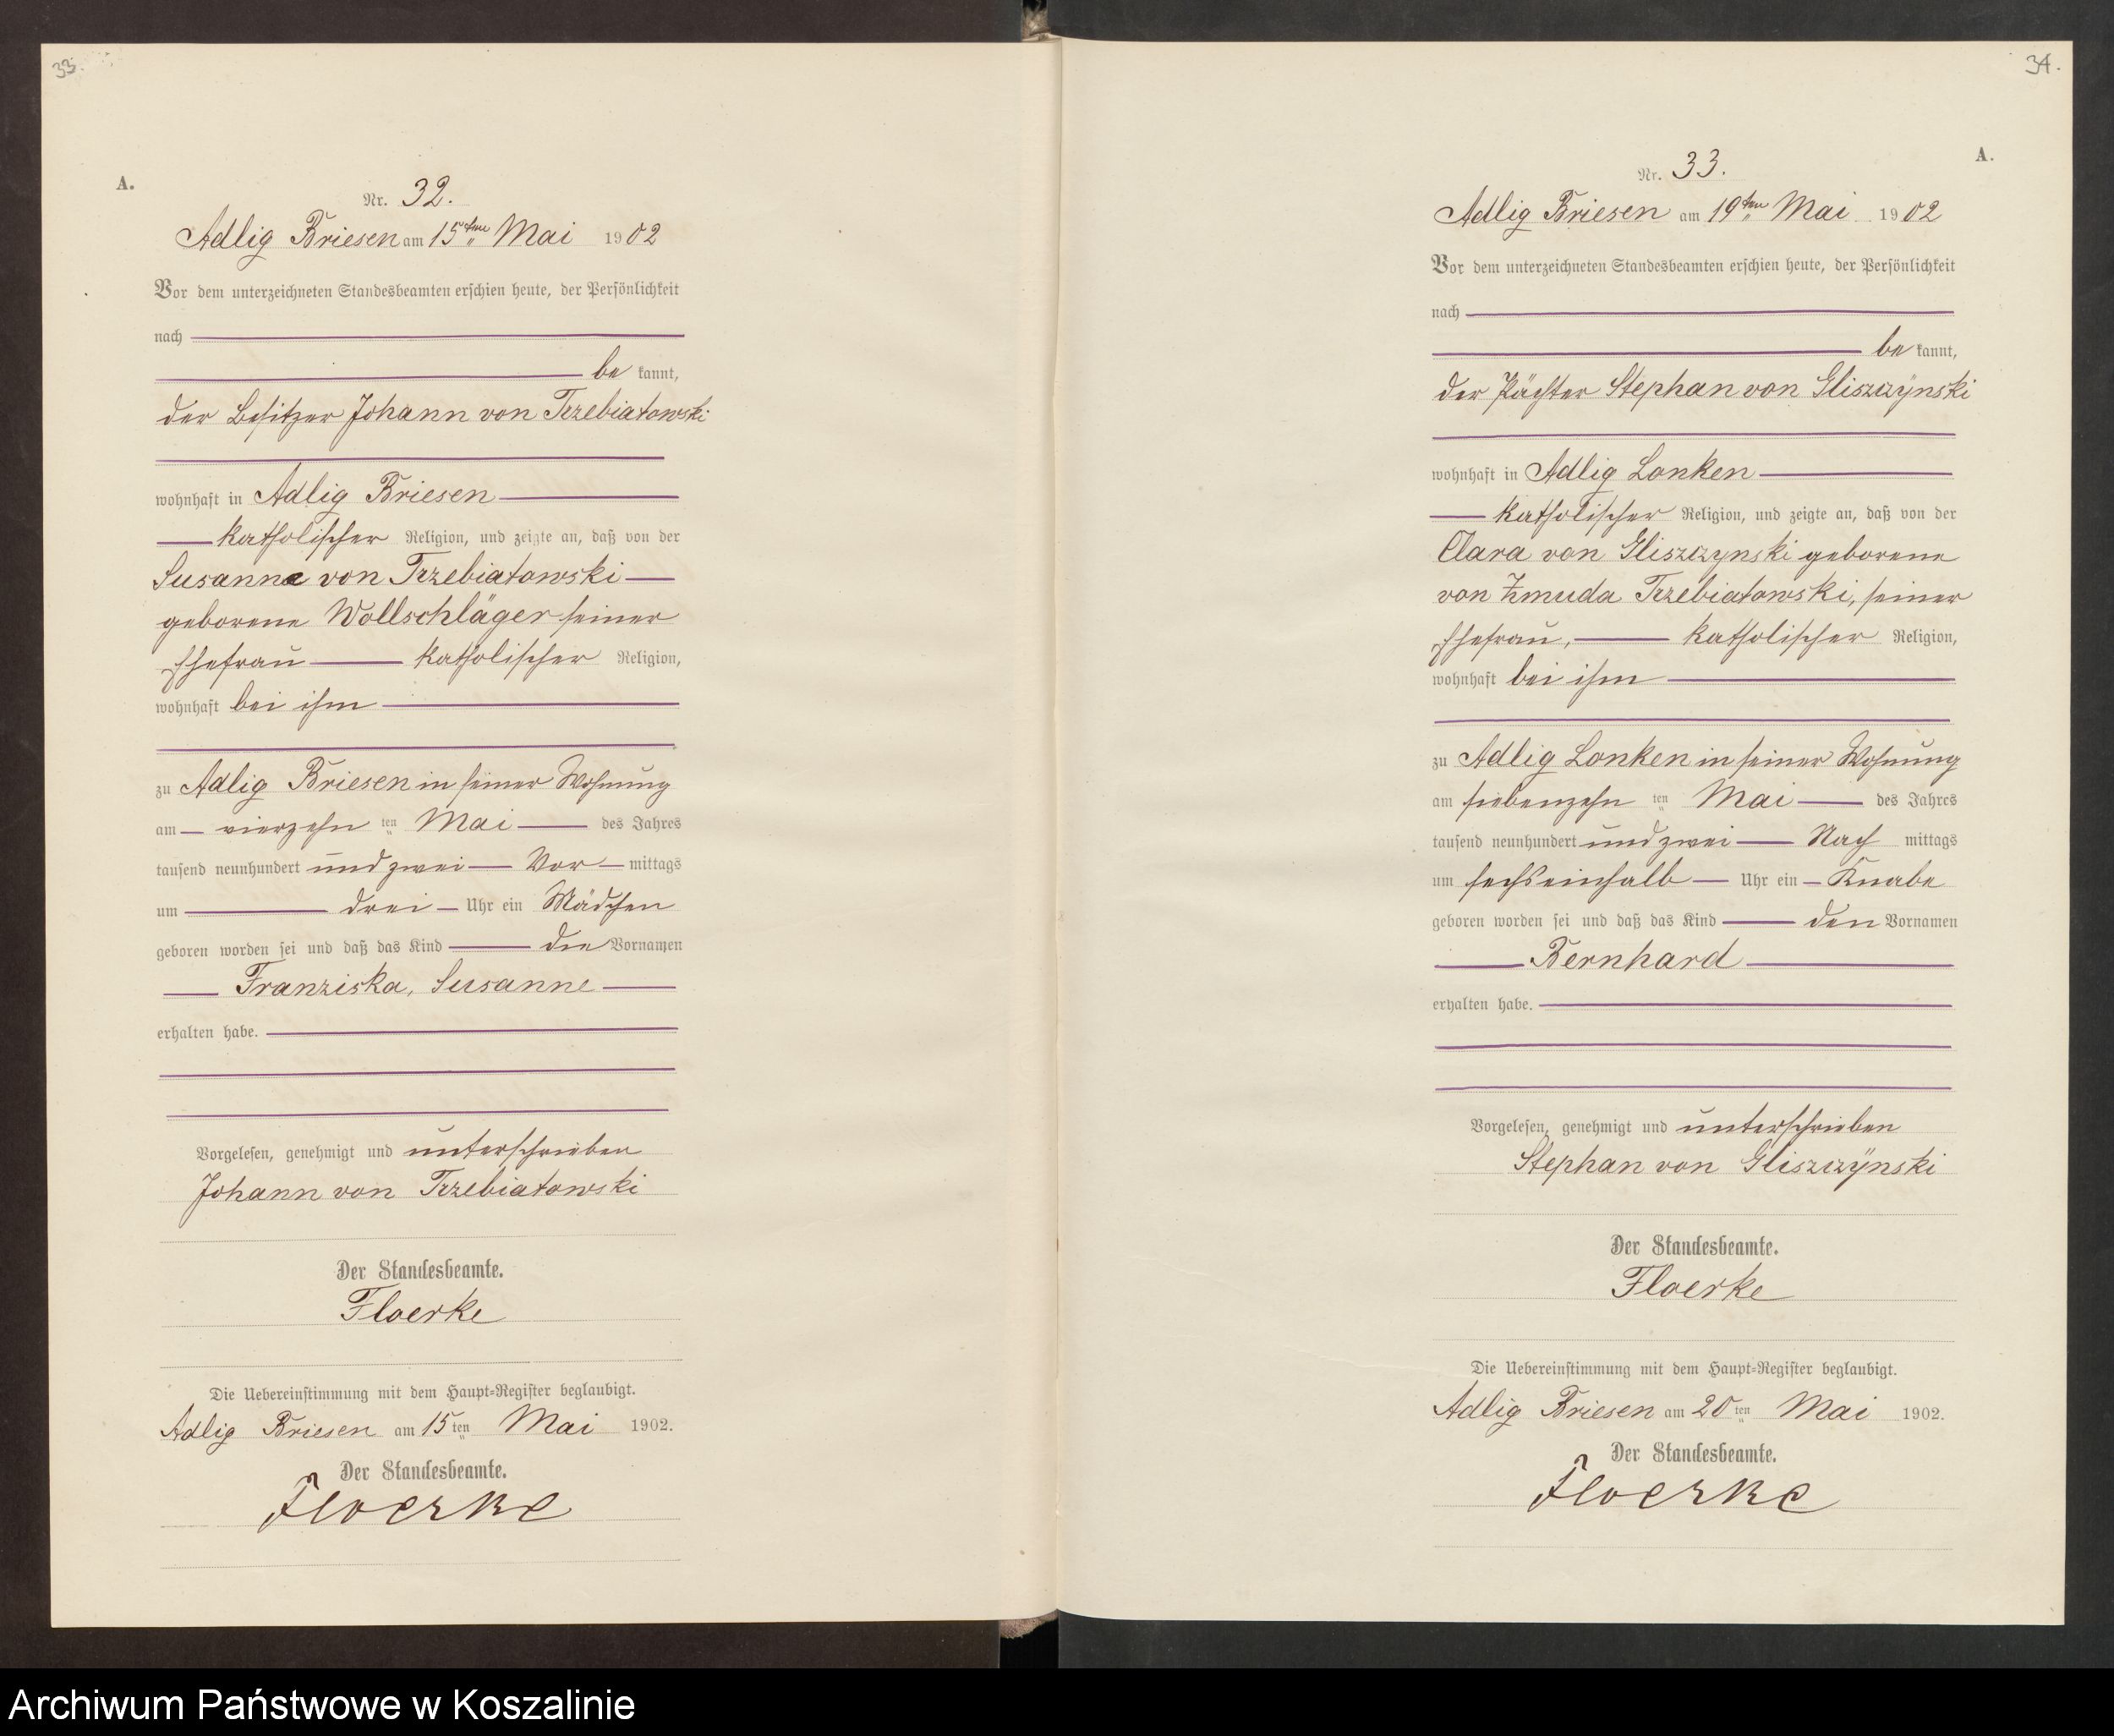 33.
A.
Nr. 32.
Adlig Briesen am 15ten Mai 1902
Vor dem unterzeichneten Standesbeamten erschien heute, der Persönlichkeit
nach
be kannt,
der Besitzer Johann von Trzebiatowski
wohnhaft in Adlig Briesen
katholischer Religion, und zeigte an, daß von der
Susanne von Trzebiatowski
geborene Wollschläger seiner
Ehefrau katholischer Religion,
wohnhaft bei ihm
zu Adlig Briesen in seiner Wohnung
am vierzehn ten Mai des Jahres
tausend neunhundert und zwei Vor mittags
um drei Uhr ein Mädchen
geboren worden sei und daß das Kind die Vornamen
Franziska, Susanne
erhalten habe.
Vorgelesen, genehmigt und unterschrieben
Johann von Trzebiatowski
Der Standesbeamte.
Floerke
Die Uebereinstimmung mit dem Haupt=Register beglaubigt.
Adlig Briesen am 15 ten Mai 1902.
Der Standesbeamte.
Floerke
34.
A.
Nr. 33.
Adlig Briesen am 19ten Mai 1902
Vor dem unterzeichneten Standesbeamten erschien heute, der Persönlichkeit
nach
be kannt,
der Pächter Stephan von Gliszczÿnski
wohnhaft in Adlig Lonken
katholischer Religion, und zeigte an, daß von der
Clara von Gliszczynski geborene
von Zmuda Trzebiatowski, seiner
Ehefrau, katholischer Religion,
wohnhaft bei ihm
zu Adlig Lonken in seiner Wohnung
am siebenzehn ten Mai des Jahres
tausend neunhundert und zwei Nach mittags
um sechseinhalb Uhr ein Knabe
geboren worden sei und daß das Kind den Vornamen
Bernhard
erhalten habe.
Vorgelesen, genehmigt und unterschrieben
Stephan von Gliszczÿnski
Der Standesbeamte.
Floerke
Die Uebereinstimmung mit dem Haupt=Register beglaubigt.
Adlig Briesen am 20 ten Mai 1902.
Der Standesbeamte.
Floerke
Archiwum Państwowe w Koszalinie